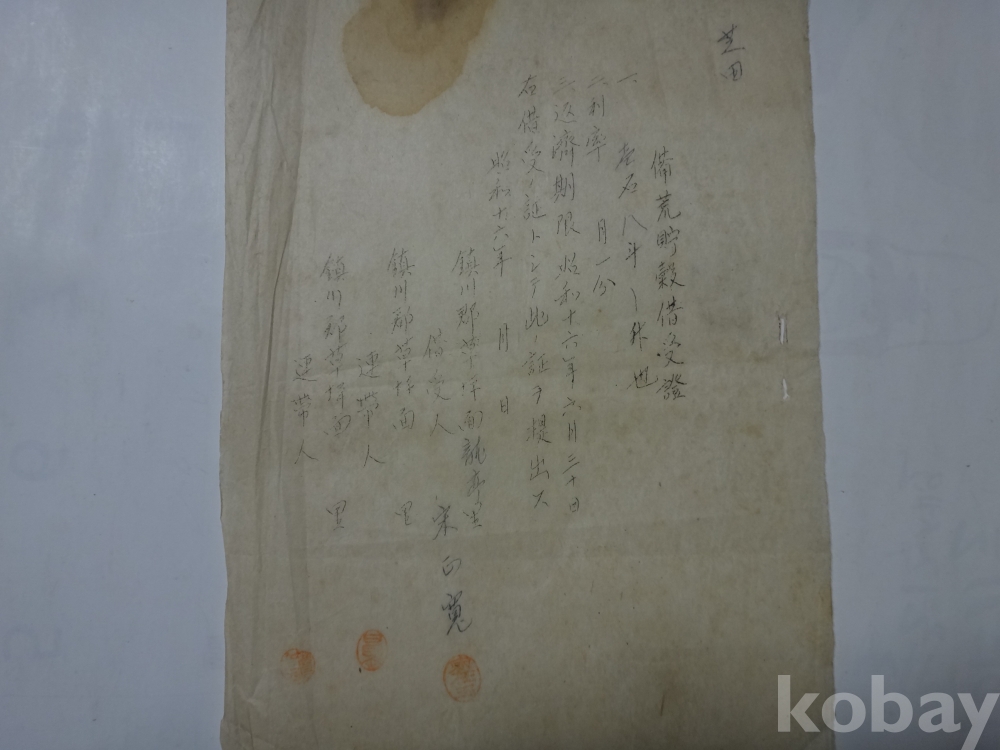 芝田
備荒貯穀借受證
一、壱石八斗 升也
二、利率 月一分
三、返済期限 昭和十六年六月三十日
右借受ノ証トシテ此ノ証ヲ提出ス
昭和十六年 月 日
鎮川郡草坪面龍亭里
借受人 宋 寛
鎮川郡草坪面 里
連帯人
鎮川郡草坪面 里
連帯人
kobay